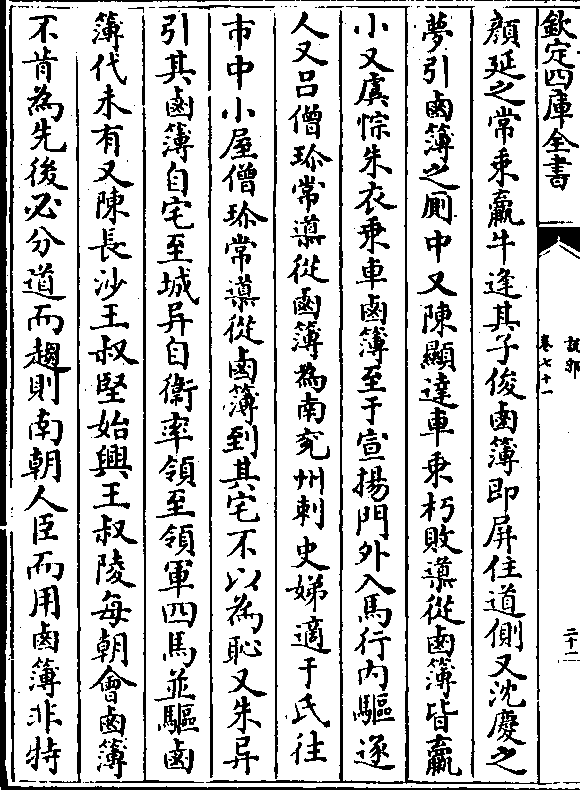 欽定四庫全書
說郛
卷七十一
二十二
顔延之常乘羸牛逢其子俊鹵簿即屏住道側又沈慶之
夢引鹵簿之厠中又陳顯達車乘朽敗導從鹵簿皆羸
小又虞悰朱衣乘車鹵簿至于宣揚門外入馬行内驅逐
人又吕僧珍常導從鹵簿為南兖州刺史娣適于氏往
市中小屋僧珍常導從鹵簿到其宅不以為恥又朱异
引其鹵簿自宅至城异自衛率領至領軍四馬並驅鹵
簿代未有又陳長沙王叔堅始興王叔陵每朝會鹵簿
不肯為先後必分道而趨則南朝人臣而用鹵簿非特